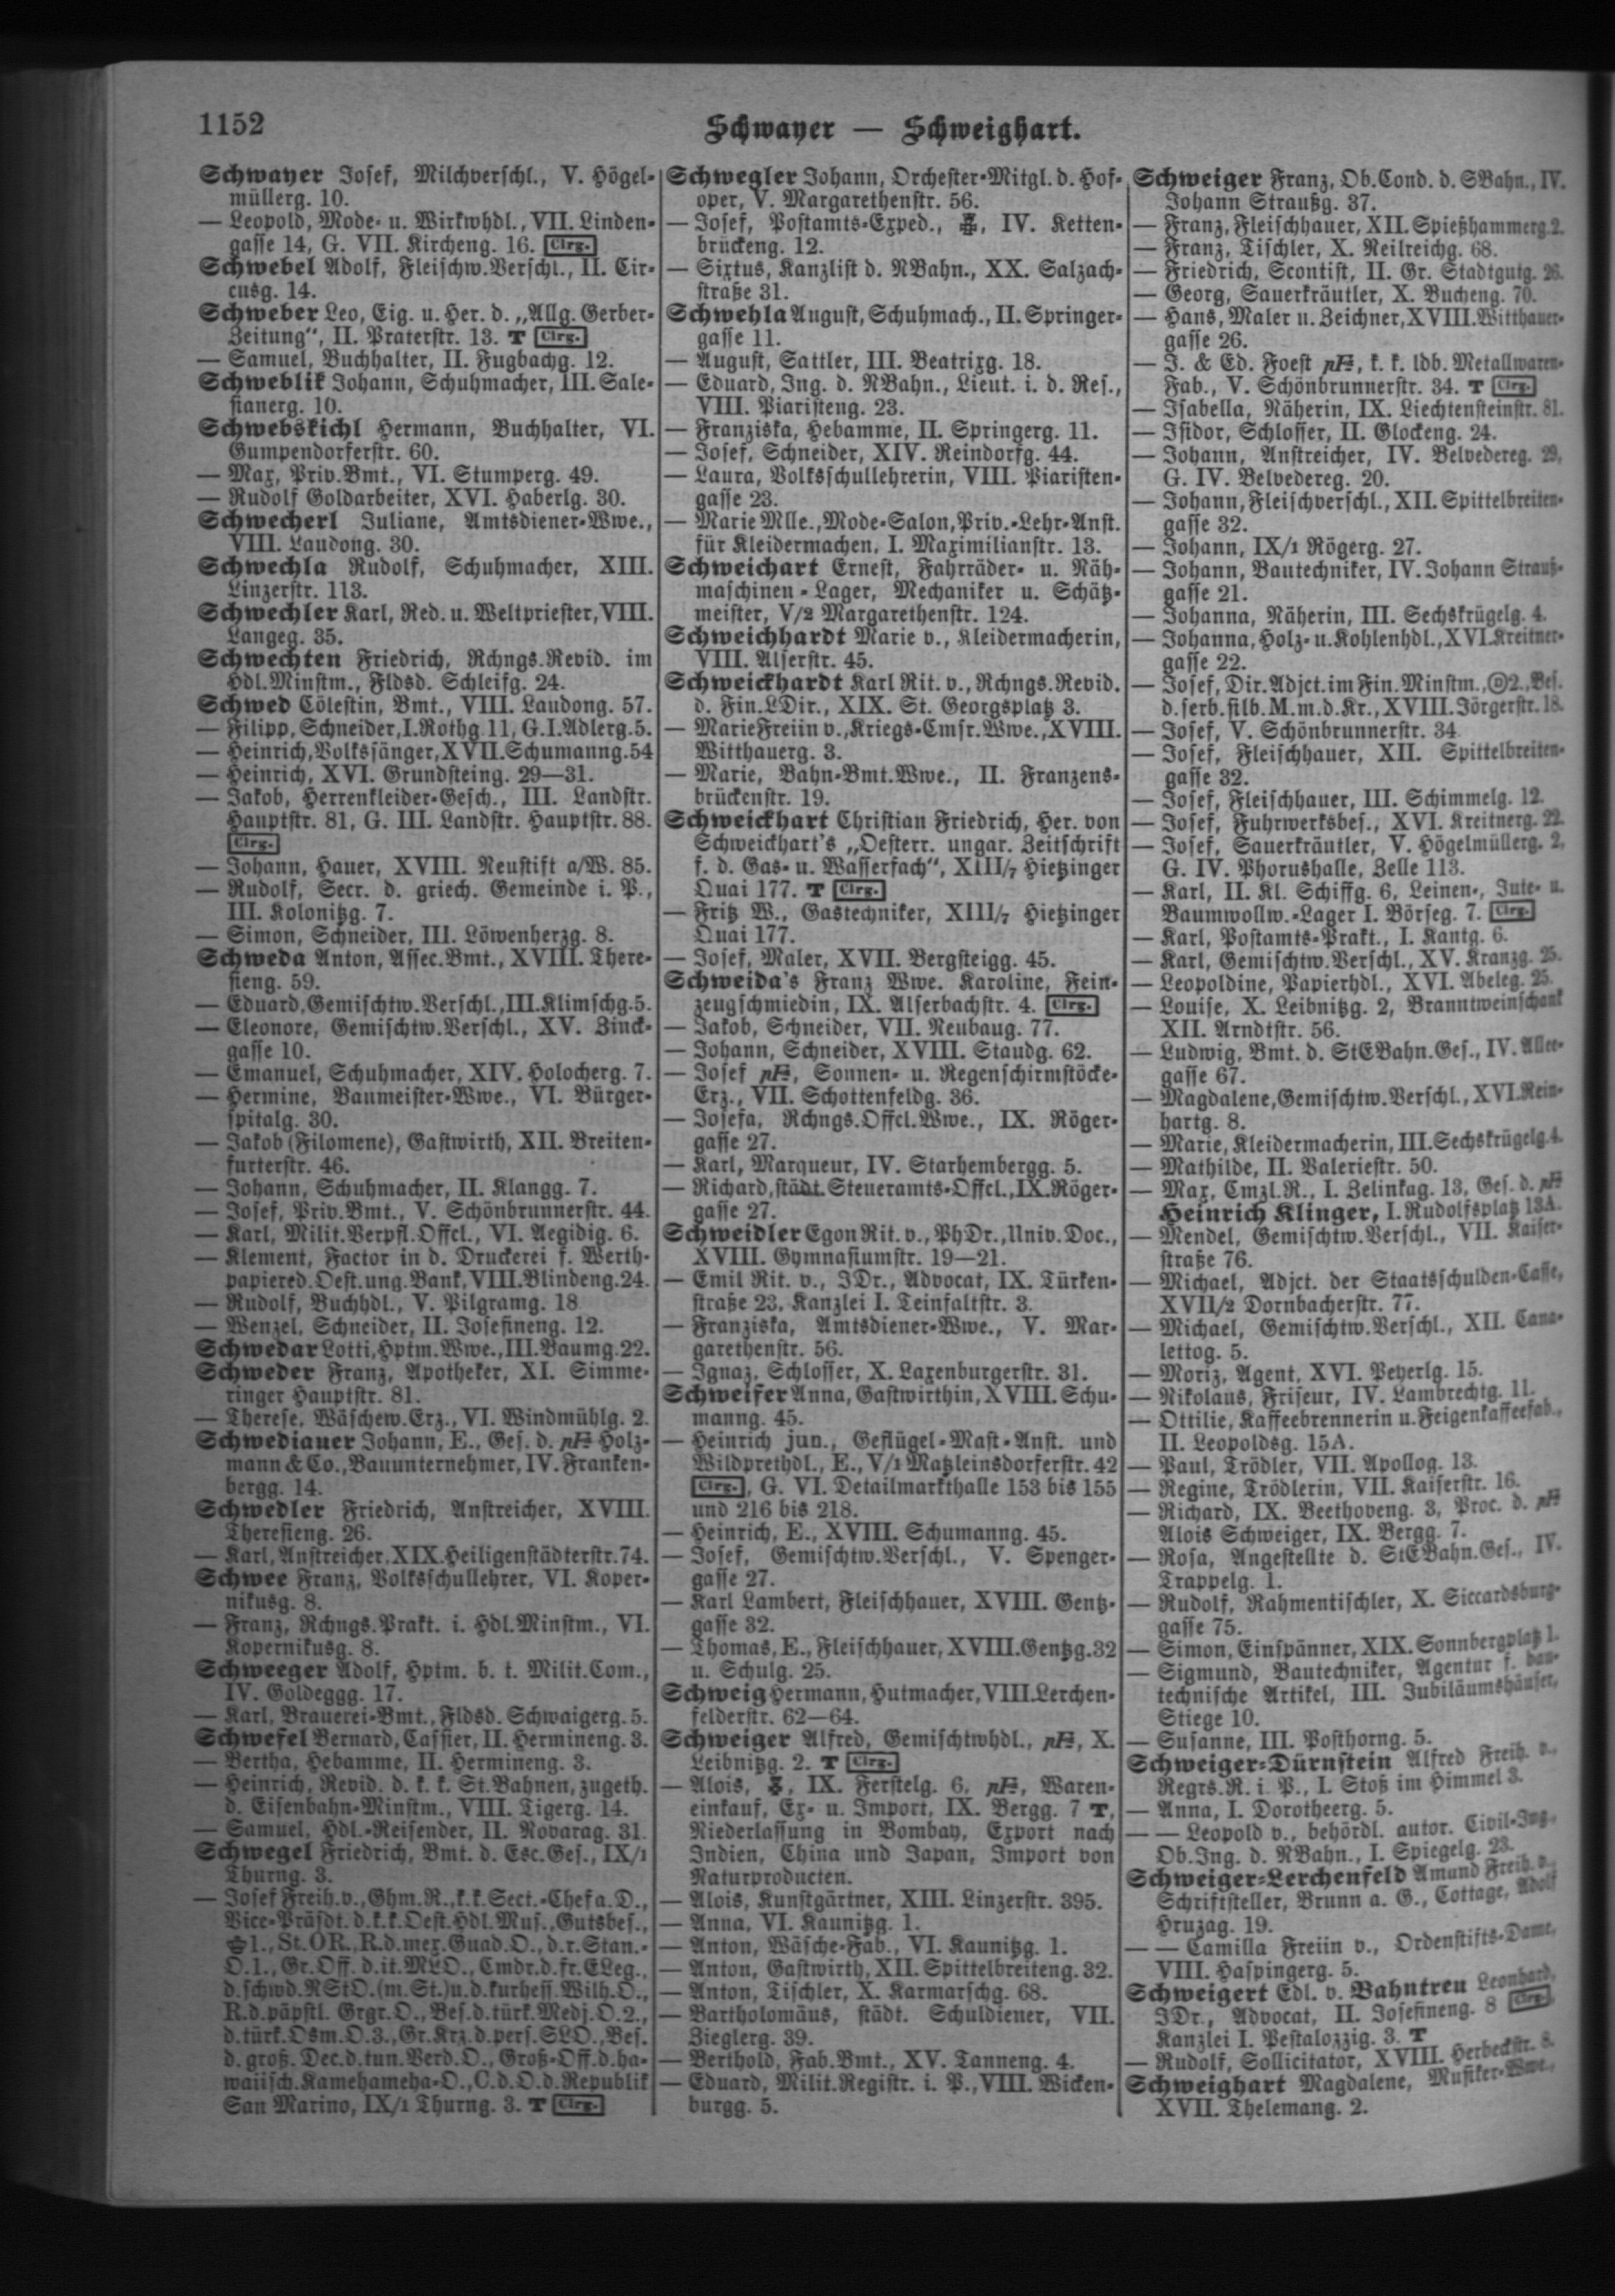 1152
Schwayer — Schweighart.
Schwayer Josef, Milchverschl., V. Högel-
müllerg. 10.
— Leopold, Mode- u. Wirkwhdl., VII. Linden-
gasse 14, G. VII. Kircheng. 16. Clrg.
Schwebel Adolf, Fleischw.Verschl., II. Cir-
cusg. 14.
Schweber Leo, Eig. u. Her. d. „Allg. Gerber-
Zeitung“, II. Praterstr. 13. T Clrg.
— Samuel, Buchhalter, II. Fugbachg. 12.
Schweblik Johann, Schuhmacher, III. Sale-
sianerg. 10.
Schwebskichl Hermann, Buchhalter, VI.
Gumpendorferstr. 60.
— Max, Priv.Bmt., VI. Stumperg. 49.
— Rudolf Goldarbeiter, XVI. Haberlg. 30.
Schwecherl Juliane, Amtsdiener-Wwe.,
VIII. Laudong. 30.
Schwechla Rudolf, Schuhmacher, XIII.
Linzerstr. 113.
Schwechler Karl, Red. u. Weltpriester, VIII.
Langeg. 35.
Schwechten Friedrich, Rchngs.Revid. im
Hdl.Minstm., Fldsd. Schleifg. 24.
Schwed Cölestin, Bmt., VIII. Laudong. 57.
— Filipp, Schneider, I.Rothg 11, G.I.Adlerg.5.
— Heinrich, Volkssänger, XVII.Schumanng.54
— Heinrich, XVI. Grundsteing. 29—31.
— Jakob, Herrenkleider-Gesch., III. Landstr.
Hauptstr. 81, G. III. Landstr. Hauptstr. 88.
Clrg.
— Johann, Hauer, XVIII. Neustift a/W. 85.
— Rudolf, Secr. d. griech. Gemeinde i. P.,
III. Kolonitzg. 7.
— Simon, Schneider, III. Löwenherzg. 8.
Schweda Anton, Assec.Bmt., XVIII. There-
sieng. 59.
— Eduard, Gemischtw.Verschl., III.Klimschg.5.
— Eleonore, Gemischtw.Verschl., XV. Zinck-
gasse 10.
— Emanuel, Schuhmacher, XIV. Holocherg. 7.
— Hermine, Baumeister-Wwe., VI. Bürger-
spitalg. 30.
— Jakob (Filomene), Gastwirth, XII. Breiten-
furterstr. 46.
— Johann, Schuhmacher, II. Klangg. 7.
— Josef, Priv.Bmt., V. Schönbrunnerstr. 44.
— Karl, Milit.Verpfl.Offcl., VI. Aegidig. 6.
— Klement, Factor in d. Druckerei f. Werth-
papiered.Oest.ung.Bank,VIII.Blindeng.24.
— Rudolf, Buchhdl., V. Pilgramg. 18
— Wenzel, Schneider, II. Josefineng. 12.
Schwedar Lotti, Hptm.Wwe., III.Baumg.22.
Schweder Franz, Apotheker, XI. Simme-
ringer Hauptstr. 81.
— Therese, Wäschew.Erz., VI. Windmühlg. 2.
Schwediauer Johann, E., Ges. d. pF Holz-
mann & Co., Bauunternehmer, IV. Franken-
bergg. 14.
Schwedler Friedrich, Anstreicher, XVIII.
Theresieng. 26.
— Karl, Anstreicher, XIX.Heiligenstädterstr.74.
Schwee Franz, Volksschullehrer, VI. Koper-
nikusg. 8.
— Franz, Rchngs.Prakt. i. Hdl.Minstm., VI.
Kopernikusg. 8.
Schweeger Adolf, Hptm. b. t. Milit.Com.,
IV. Goldeggg. 17.
— Karl, Brauerei-Bmt., Fldsd. Schwaigerg. 5.
Schwefel Bernard, Cassier, II. Hermineng. 3.
— Bertha, Hebamme, II. Hermineng. 3.
— Heinrich, Revid. d. k. k. St.Bahnen, zugeth.
d. Eisenbahn-Minstm., VIII. Tigerg. 14.
— Samuel, Hdl.-Reisender, II. Novarag. 31.
Schwegel Friedrich, Bmt. d. Esc.Ges., IX/1
Thurng. 3.
— Josef Freih.v., Ghm.R., k.k.Sect.-Chef a.D.,
Vice-Präsdt.d.k.k.Oest.Hdl.Mus., Gutsbes.,
1., St.OR., R.d.mex.Guad.O., d.r.Stan.-
O.1., Gr.Off.d.it.MLO., Cmdr.d.fr.ELeg.,
d.schwd.RStO.(m.St.)u.d.kurhess.Wilh.O.,
R.d.päpstl. Grgr.O., Bes.d.türk.Medj.O.2.,
d.türk.Osm.O.3., Gr.Krz.d.pers.SLO., Bes.
d. groß. Dec.d.tun.Verd.O., Groß-Off.d.ha-
waiisch.Kamehameha-O., C.d.O.d.Republik
San Marino, IX/1 Thurng. 3. T Clrg.
Schwegler Johann, Orchester-Mitgl. d. Hof-
oper, V. Margarethenstr. 56.
— Josef, Postamts-Exped., IV. Ketten-
brückeng. 12.
— Sixtus, Kanzlist d. NBahn., XX. Salzach-
straße 31.
Schwehla August, Schuhmach., II. Springer-
gasse 11.
— August, Sattler, III. Beatrixg. 18.
— Eduard, Ing. d. NBahn., Lieut. i. d. Res.,
VIII. Piaristeng. 23.
— Franziska, Hebamme, II. Springerg. 11.
— Josef, Schneider, XIV. Reindorfg. 44.
— Laura, Volksschullehrerin, VIII. Piaristen-
gasse 23.
— Marie Mlle., Mode-Salon, Priv.-Lehr-Anst.
für Kleidermachen, I. Maximilianstr. 13.
Schweichart Ernest, Fahrräder- u. Näh-
maschinen-Lager, Mechaniker u. Schätz-
meister, V/2 Margarethenstr. 124.
Schweichhardt Marie v., Kleidermacherin,
VIII. Alserstr. 45.
Schweickhardt Karl Rit. v., Rchngs.Revid.
d. Fin.LDir., XIX. St. Georgsplatz 3.
— Marie Freiin v., Kriegs-Cmsr.Wwe., XVIII.
Witthauerg. 3.
— Marie, Bahn-Bmt.Wwe., II. Franzens-
brückenstr. 19.
Schweickhart Christian Friedrich, Her. von
Schweickhart's „Oesterr. ungar. Zeitschrift
f. d. Gas- u. Wasserfach“, XIII/7 Hietzinger
Quai 177. T Clrg.
— Fritz W., Gastechniker, XIII/7 Hietzinger
Quai 177.
— Josef, Maler, XVII. Bergsteigg. 45.
Schweida's Franz Wwe. Karoline, Fein-
zeugschmiedin, IX. Alserbachstr. 4. Clrg.
— Jakob, Schneider, VII. Neubaug. 77.
— Johann, Schneider, XVIII. Staudg. 62.
— Josef pF, Sonnen- u. Regenschirmstöcke-
Erz., VII. Schottenfeldg. 36.
— Josefa, Rchngs.Offcl.Wwe., IX. Röger-
gasse 27.
— Karl, Marqueur, IV. Starhembergg. 5.
— Richard, städt. Steueramts-Offcl., IX.Röger-
gasse 27.
Schweidler Egon Rit. v., PhDr., Univ. Doc.,
XVIII. Gymnasiumstr. 19—21.
— Emil Rit. v., JDr., Advocat, IX. Türken-
straße 23, Kanzlei I. Teinfaltstr. 3.
— Franziska, Amtsdiener-Wwe., V. Mar-
garethenstr. 56.
— Ignaz, Schlosser, X. Laxenburgerstr. 31.
Schweifer Anna, Gastwirthin, XVIII. Schu-
manng. 45.
— Heinrich jun., Geflügel-Mast-Anst. und
Wildprethdl., E., V/1 Matzleinsdorferstr. 42
Clrg., G. VI. Detailmarkthalle 153 bis 155
und 216 bis 218.
— Heinrich, E., XVIII. Schumanng. 45.
— Josef, Gemischtw.Verschl., V. Spenger-
gasse 27.
— Karl Lambert, Fleischhauer, XVIII. Gentz-
gasse 32.
— Thomas, E., Fleischhauer, XVIII.Gentzg.32
u. Schulg. 25.
Schweig Hermann, Hutmacher, VIII.Lerchen-
felderstr. 62—64.
Schweiger Alfred, Gemischtwhdl., pF, X.
Leibnitzg. 2. T Clrg.
— Alois, IX. Ferstelg. 6, pF, Waren-
einkauf, Ex- u. Import, IX. Bergg. 7 T,
Niederlassung in Bombay, Export nach
Indien, China und Japan, Import von
Naturproducten.
— Alois, Kunstgärtner, XIII. Linzerstr. 395.
— Anna, VI. Kaunitzg. 1.
— Anton, Wäsche-Fab., VI. Kaunitzg. 1.
— Anton, Gastwirth, XII. Spittelbreiteng. 32.
— Anton, Tischler, X. Karmarschg. 68.
— Bartholomäus, städt. Schuldiener, VII.
Zieglerg. 39.
— Berthold, Fab.Bmt., XV. Tanneng. 4.
— Eduard, Milit.Registr. i. P., VIII. Wicken-
burgg. 5.
Schweiger Franz, Ob.Cond. d. SBahn., IV.
Johann Straußg. 37.
— Franz, Fleischhauer, XII. Spießhammerg.2.
— Franz, Tischler, X. Neilreichg. 68.
— Friedrich, Scontist, II. Gr. Stadtgutg. 26.
— Georg, Sauerkräutler, X. Bucheng. 70.
— Hans, Maler u. Zeichner, XVIII.Witthauer-
gasse 26.
— J. & Ed. Foest pF, k. k. ldb. Metallwaren-
Fab., V. Schönbrunnerstr. 34. T Clrg.
— Isabella, Näherin, IX. Liechtensteinstr. 81.
— Isidor, Schlosser, II. Glockeng. 24.
— Johann, Anstreicher, IV. Belvedereg. 29,
G. IV. Belvedereg. 20.
— Johann, Fleischverschl., XII. Spittelbreiten-
gasse 32.
— Johann, IX/1 Rögerg. 27.
— Johann, Bautechniker, IV. Johann Strauß-
gasse 21.
— Johanna, Näherin, III. Sechskrügelg. 4.
— Johanna, Holz- u. Kohlenhdl., XVI.Kreitner-
gasse 22.
— Josef, Dir.Adjct.im Fin.Minstm., 2., Bes.
d.serb.silb.M.m.d.Kr., XVIII. Jörgerstr. 18.
— Josef, V. Schönbrunnerstr. 34
— Josef, Fleischhauer, XII. Spittelbreiten-
gasse 32.
— Josef, Fleischhauer, III. Schimmelg. 12.
— Josef, Fuhrwerksbes., XVI. Kreitnerg. 22.
— Josef, Sauerkräutler, V. Högelmüllerg. 2,
G. IV. Phorushalle, Zelle 113.
— Karl, II. Kl. Schiffg. 6, Leinen-, Jute- u.
Baumwollw.-Lager I. Börseg. 7. Clrg.
— Karl, Postamts-Prakt., I. Kantg. 6.
— Karl, Gemischtw.Verschl., XV. Kranzg. 25.
— Leopoldine, Papierhdl., XVI. Abeleg. 25.
— Louise, X. Leibnitzg. 2, Branntweinschank
XII. Arndtstr. 56.
— Ludwig, Bmt. d. StEBahn.Ges., IV. Allee-
gasse 67.
— Magdalene, Gemischtw.Verschl., XVI.Rein-
hartg. 8.
— Marie, Kleidermacherin, III.Sechskrügelg.4.
— Mathilde, II. Valeriestr. 50.
— Max, Cmzl.R., I. Zelinkag. 13, Ges. d. pF
Heinrich Klinger, I. Rudolfsplatz 13A.
— Mendel, Gemischtw.Verschl., VII. Kaiser-
straße 76.
— Michael, Adjct. der Staatsschulden-Casse,
XVII/2 Dornbacherstr. 77.
— Michael, Gemischtw.Verschl., XII. Cana-
lettog. 5.
— Moriz, Agent, XVI. Peyerlg. 15.
— Nikolaus, Friseur, IV. Lambrechtg. 11.
— Ottilie, Kaffeebrennerin u. Feigenkaffeefab.,
II. Leopoldsg. 15A.
— Paul, Trödler, VII. Apollog. 13.
— Regine, Trödlerin, VII. Kaiserstr. 16.
— Richard, IX. Beethoveng. 3, Proc. d. pF
Alois Schweiger, IX. Bergg. 7.
— Rosa, Angestellte d. StEBahn.Ges., IV.
Trappelg. 1.
— Rudolf, Rahmentischler, X. Siccardsburg-
gasse 75.
— Simon, Einspänner, XIX. Sonnbergplatz 1.
— Sigmund, Bautechniker, Agentur f. bau-
technische Artikel, III. Jubiläumshäuser,
Stiege 10.
— Susanne, III. Posthorng. 5.
Schweiger-Dürnstein Alfred Freih. v.,
Regrs.R. i P., I. Stoß im Himmel 3.
— Anna, I. Dorotheerg. 5.
— — Leopold v., behördl. autor. Civil-Ing.,
Ob.Ing. d. NBahn., I. Spiegelg. 23.
Schweiger-Lerchenfeld Amand Freih. v.,
Schriftsteller, Brunn a. G., Cottage, Adolf
Hruzag. 19.
— — Camilla Freiin v., Ordenstifts-Dame,
VIII. Haspingerg. 5.
Schweigert Edl. v. Bahntreu Leonhard,
JDr., Advocat, II. Josefineng. 8 Clrg.
Kanzlei I. Pestalozzig. 3. T
— Rudolf, Sollicitator, XVIII. Herbeckstr. 8.
Schweighart Magdalene, Musiker-Wwe.,
XVII. Thelemang. 2.